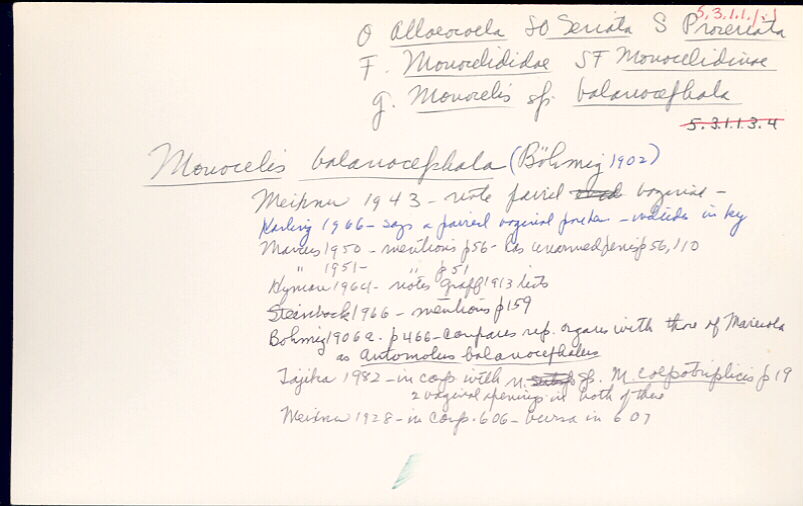 5.3.1.1.
O Alloeocoela SO Seriata S Proseriata
F. Monocelididae SF Monocelidinae
g. Monocelis sp. balanocephala
5.3.1.1.3.4
Monocelis balanocephala (Böhmig 1902)
Meixner 1943 - note paired vaginae -
Karling 1966 - says a paired vaginal - in key
Marcus 1950 - mentions p56 - has unarmed penis p56, 110
" 1951 - " p51
Hyman 1964 - notes Graff 1913 lists
Steinböck 1966 - mentions p159
Bohmig 1906a. p466 - compares rep. organs with those of Mareiola
as Automolus balanocephalus
Tajika 1982 - in comp with n. sp. M. colpotriplicis p19
2 vaginal openings in both of these
Meixner 1928 - in comp. 606 - bursa in 607